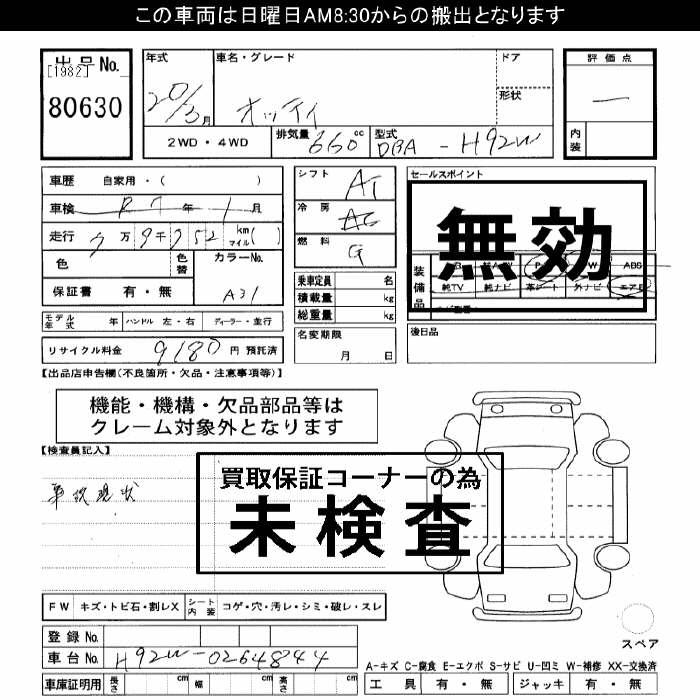 この車両は日曜日AM8:30からの搬出となります
出品No. 年式 車名・グレード ドア 評価点
[1982]
80630 20/3月 オッティ 形状 ー
2WD・4WD 排気量 660cc 型式 DBA - H92W 内装
車歴 自家用・( ) シフト AT セールスポイント
車検 R7年1月 冷房 AC
走行 万 9千 752 km マイル( ) 燃料 G
無効
色 色替 カラーNo. A31 乗車定員 名 装備品 ABS
保証書 有・無 積載量 kg 純TV 純ナビ 革シート 外ナビ エアB
総重量 kg
モデル年式 年 ハンドル 左・右 ディーラー・並行 名変期限 月 日 後日品
リサイクル料金 9180 円 預託済
【出品店申告欄(不良箇所・欠品・注意事項等)】
機能・機構・欠品部品等は
クレーム対象外となります
【検査員記入】
買取保証コーナーの為
未検査
事故現状
FW キズ・トビ石・割レX シート内装 コゲ・穴・汚レ・シミ・破レ・スレ
登録No.
スペア
車台No. H92W-0264844
A-キズ C-腐食 E-エクボ S-サビ U-凹ミ W-補修 XX-交換済
車庫証明用 長さ cm 幅 cm 高さ cm 工具 有・無 ジャッキ 有・無